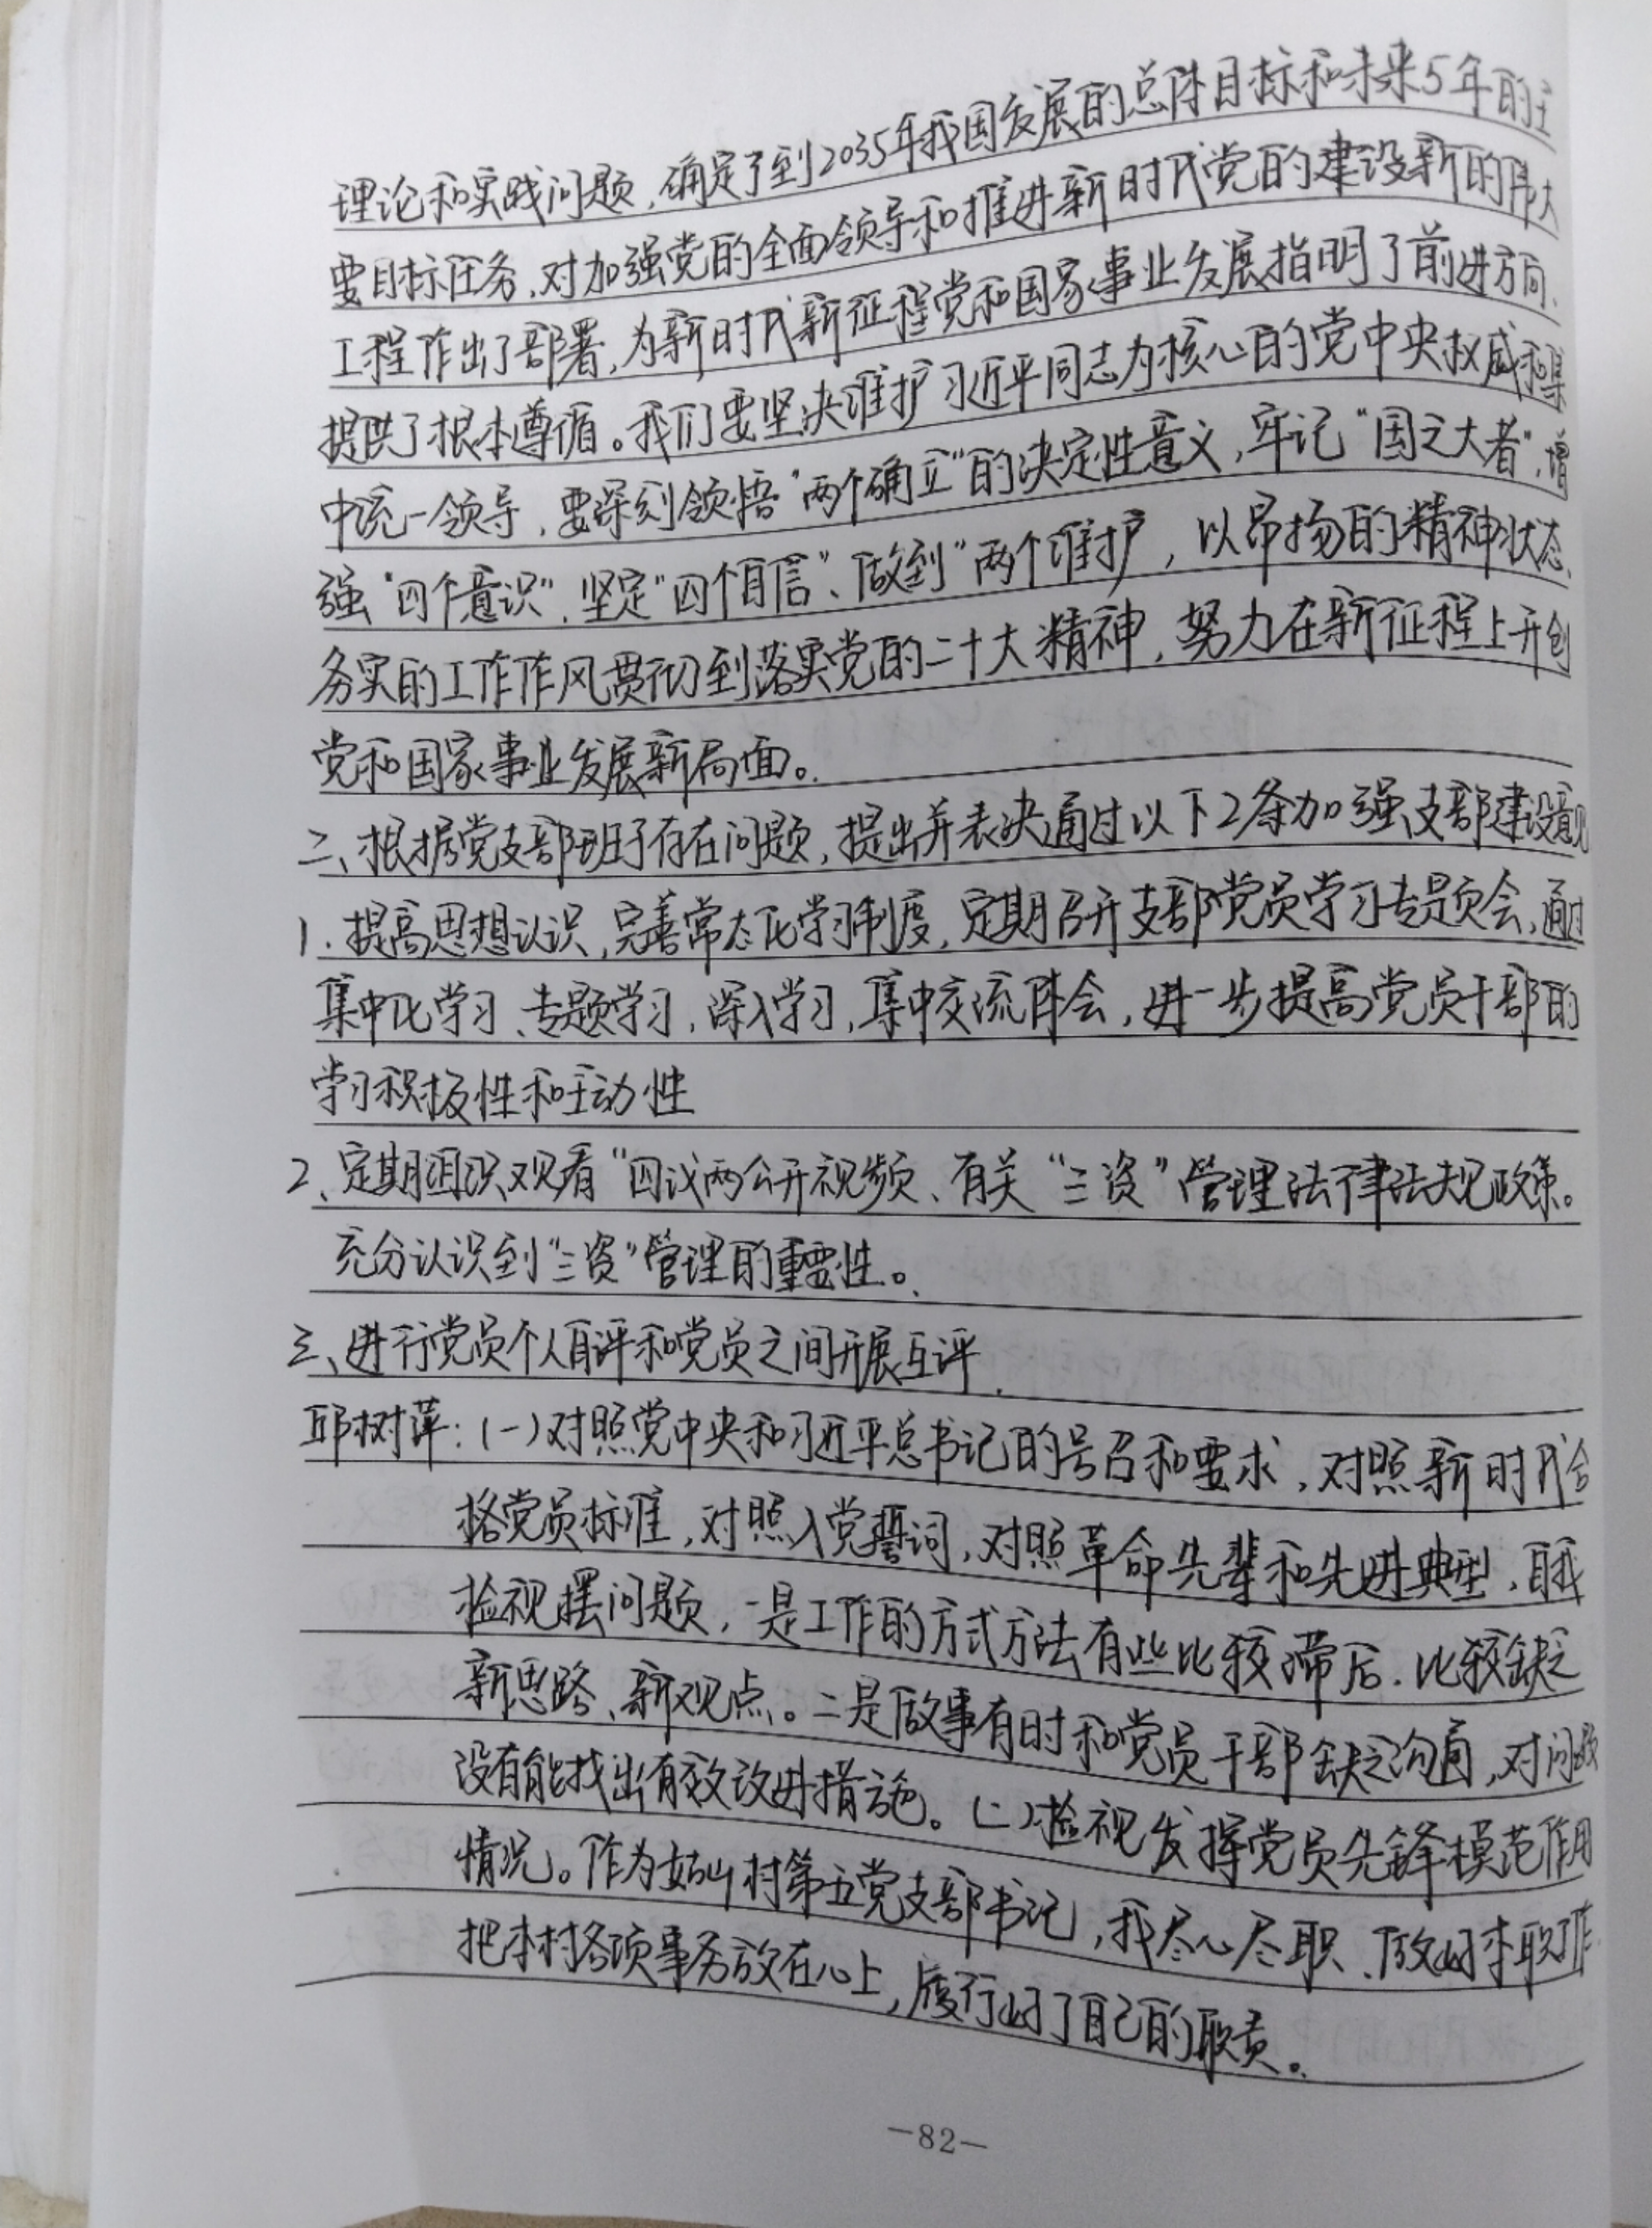 理论和实践问题，确定了到2035年我国发展的总体目标和未来5年的主
要目标任务，对加强党的全面领导和推进新时代党的建设新的伟大
工程作出了部署，为新时代新征程党和国家事业发展指明了前进方向、
提供了根本遵循。我们要坚决维护习近平同志为核心的党中央权威和集
中统一领导，要深刻领悟“两个确立”的决定性意义，牢记“国之大者”，增
强“四个意识”、坚定“四个自信”、做到“两个维护，以昂扬的精神状态、
务实的工作作风贯彻到落实党的二十大精神，努力在新征程上开创
党和国家事业发展新局面。
二、根据党支部班子存在问题，提出并表决通过以下2条加强支部建设意见
1.提高思想认识，完善常态化学习制度，定期召开支部党员学习专题会，通过
集中化学习、专题学习，深入学习，集中交流体会，进一步提高党员干部的
学习积极性和主动性
2、定期组织观看“四议两公开视频、有关“三资”管理法律法规政策。
充分认识到“三资”管理的重要性。
三、进行党员个人自评和党员之间开展互评.
邱树萍：(一)对照党中央和习近平总书记的号召和要求，对照新时代合
格党员标准，对照入党誓词，对照革命先辈和先进典型，自我
检视摆问题，一是工作的方式方法有些比较滞后.比较缺乏
新思路、新观点。二是做事有时和党员干部缺乏沟通，对问题
没有能找出有效改进措施。(二)检视发挥党员先锋模范作用
情况。作为 村第五党支部书记，我尽心尽职、做好本职工作
把本村各项事务放在心上，履行好了自己的职责。
—82—